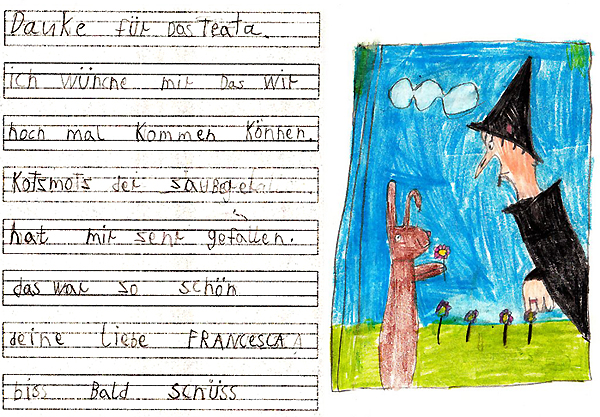 Danke für Das Teata.
ich wünche mir Das wir
noch mal Kommen Können.
Kotsmots der
hat mir sehr gefallen.
das war so schön
deine liebe FRANCESCA
biss Bald SCHÜSS